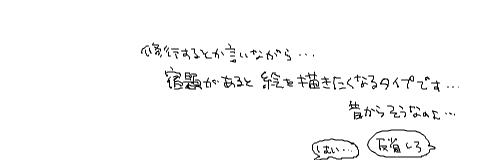 修行するとか言いながら…
宿題があると絵を描きたくなるタイプです…
昔からそうなの…
はい…
反省しろ